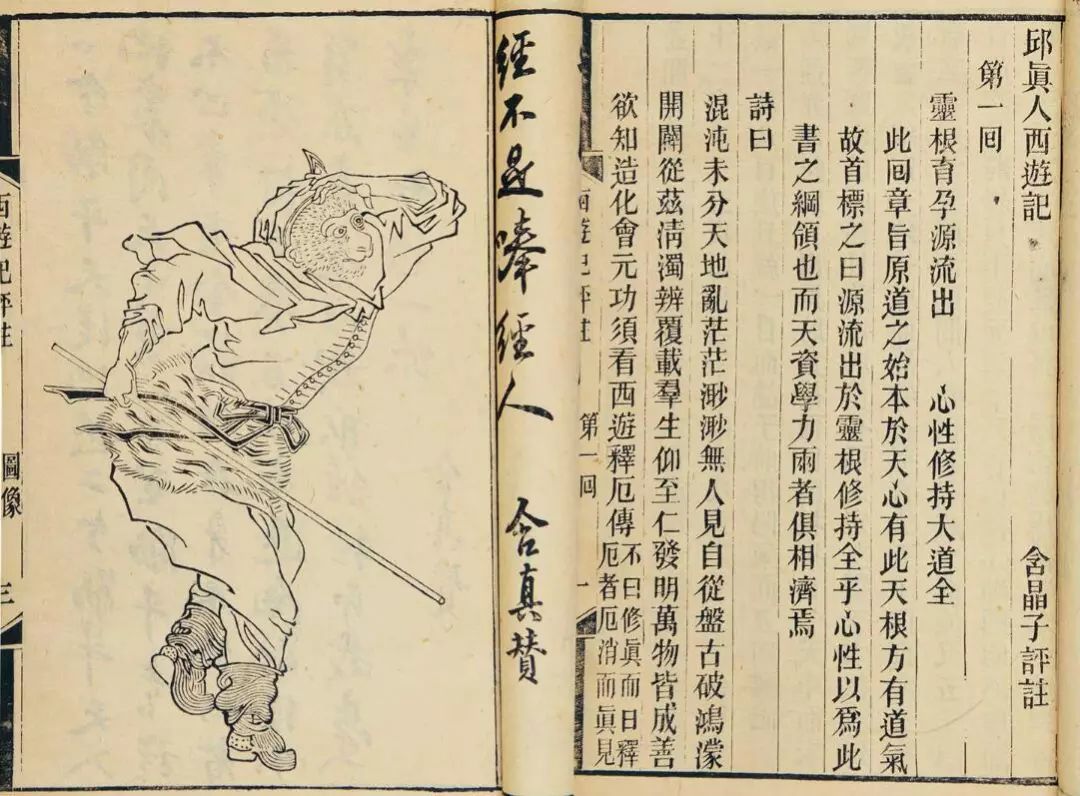 邱眞人西遊記　含晶子評註
第一回
靈根育孕源流出　心性修持大道全
此回章旨原道之始本於天心有此天根方有道氣
故首標之曰源流出於靈根修持全乎心性以爲此
書之綱領也而天資學力兩者俱相濟焉
詩曰
混沌未分天地亂茫茫渺渺無人見自從盤古破鴻濛
開闢從茲淸濁辨覆載羣生仰至仁發明萬物皆成善
欲知造化會元功須看西遊釋厄傳
不曰修眞而曰釋
厄者厄消而眞見
西遊記評註　第一回　一
經不是唪經人　含真贊
西遊記評註　圖像　三